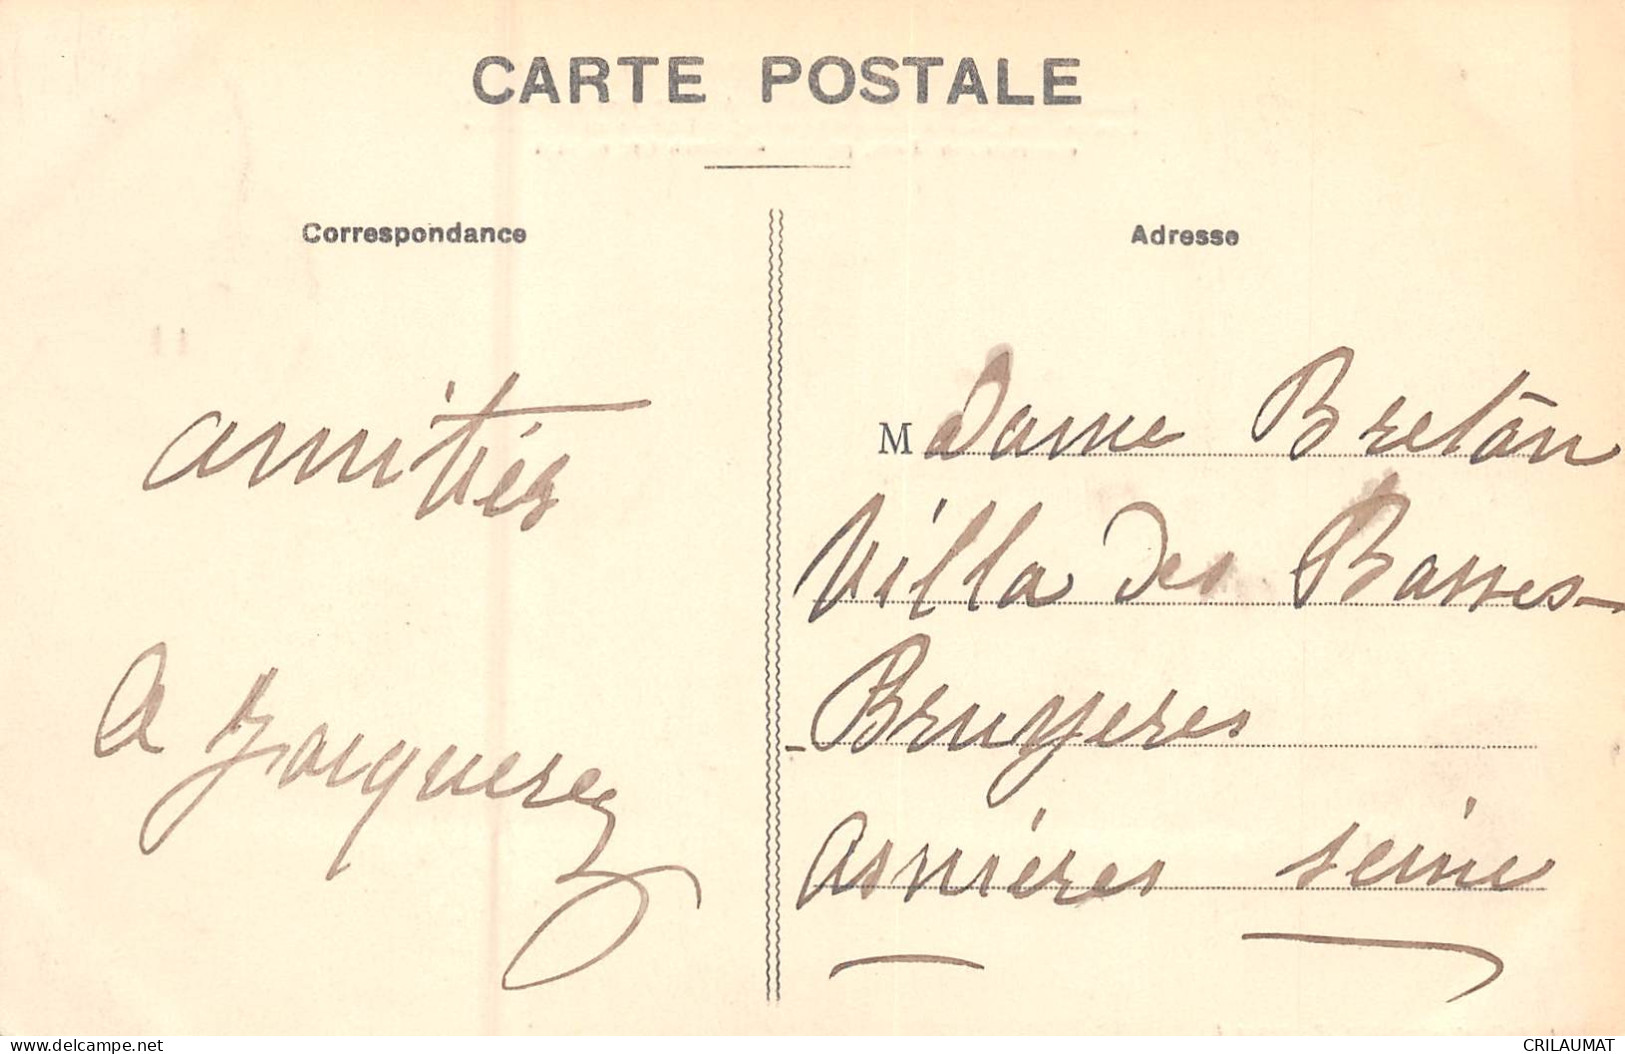 CARTE POSTALE
Correspondance
amitiés
A
Adresse
Madame Breton
Villa des Basses-
-Bruyeres
Asnières Seine
delcampe.net
CRILAUMAT